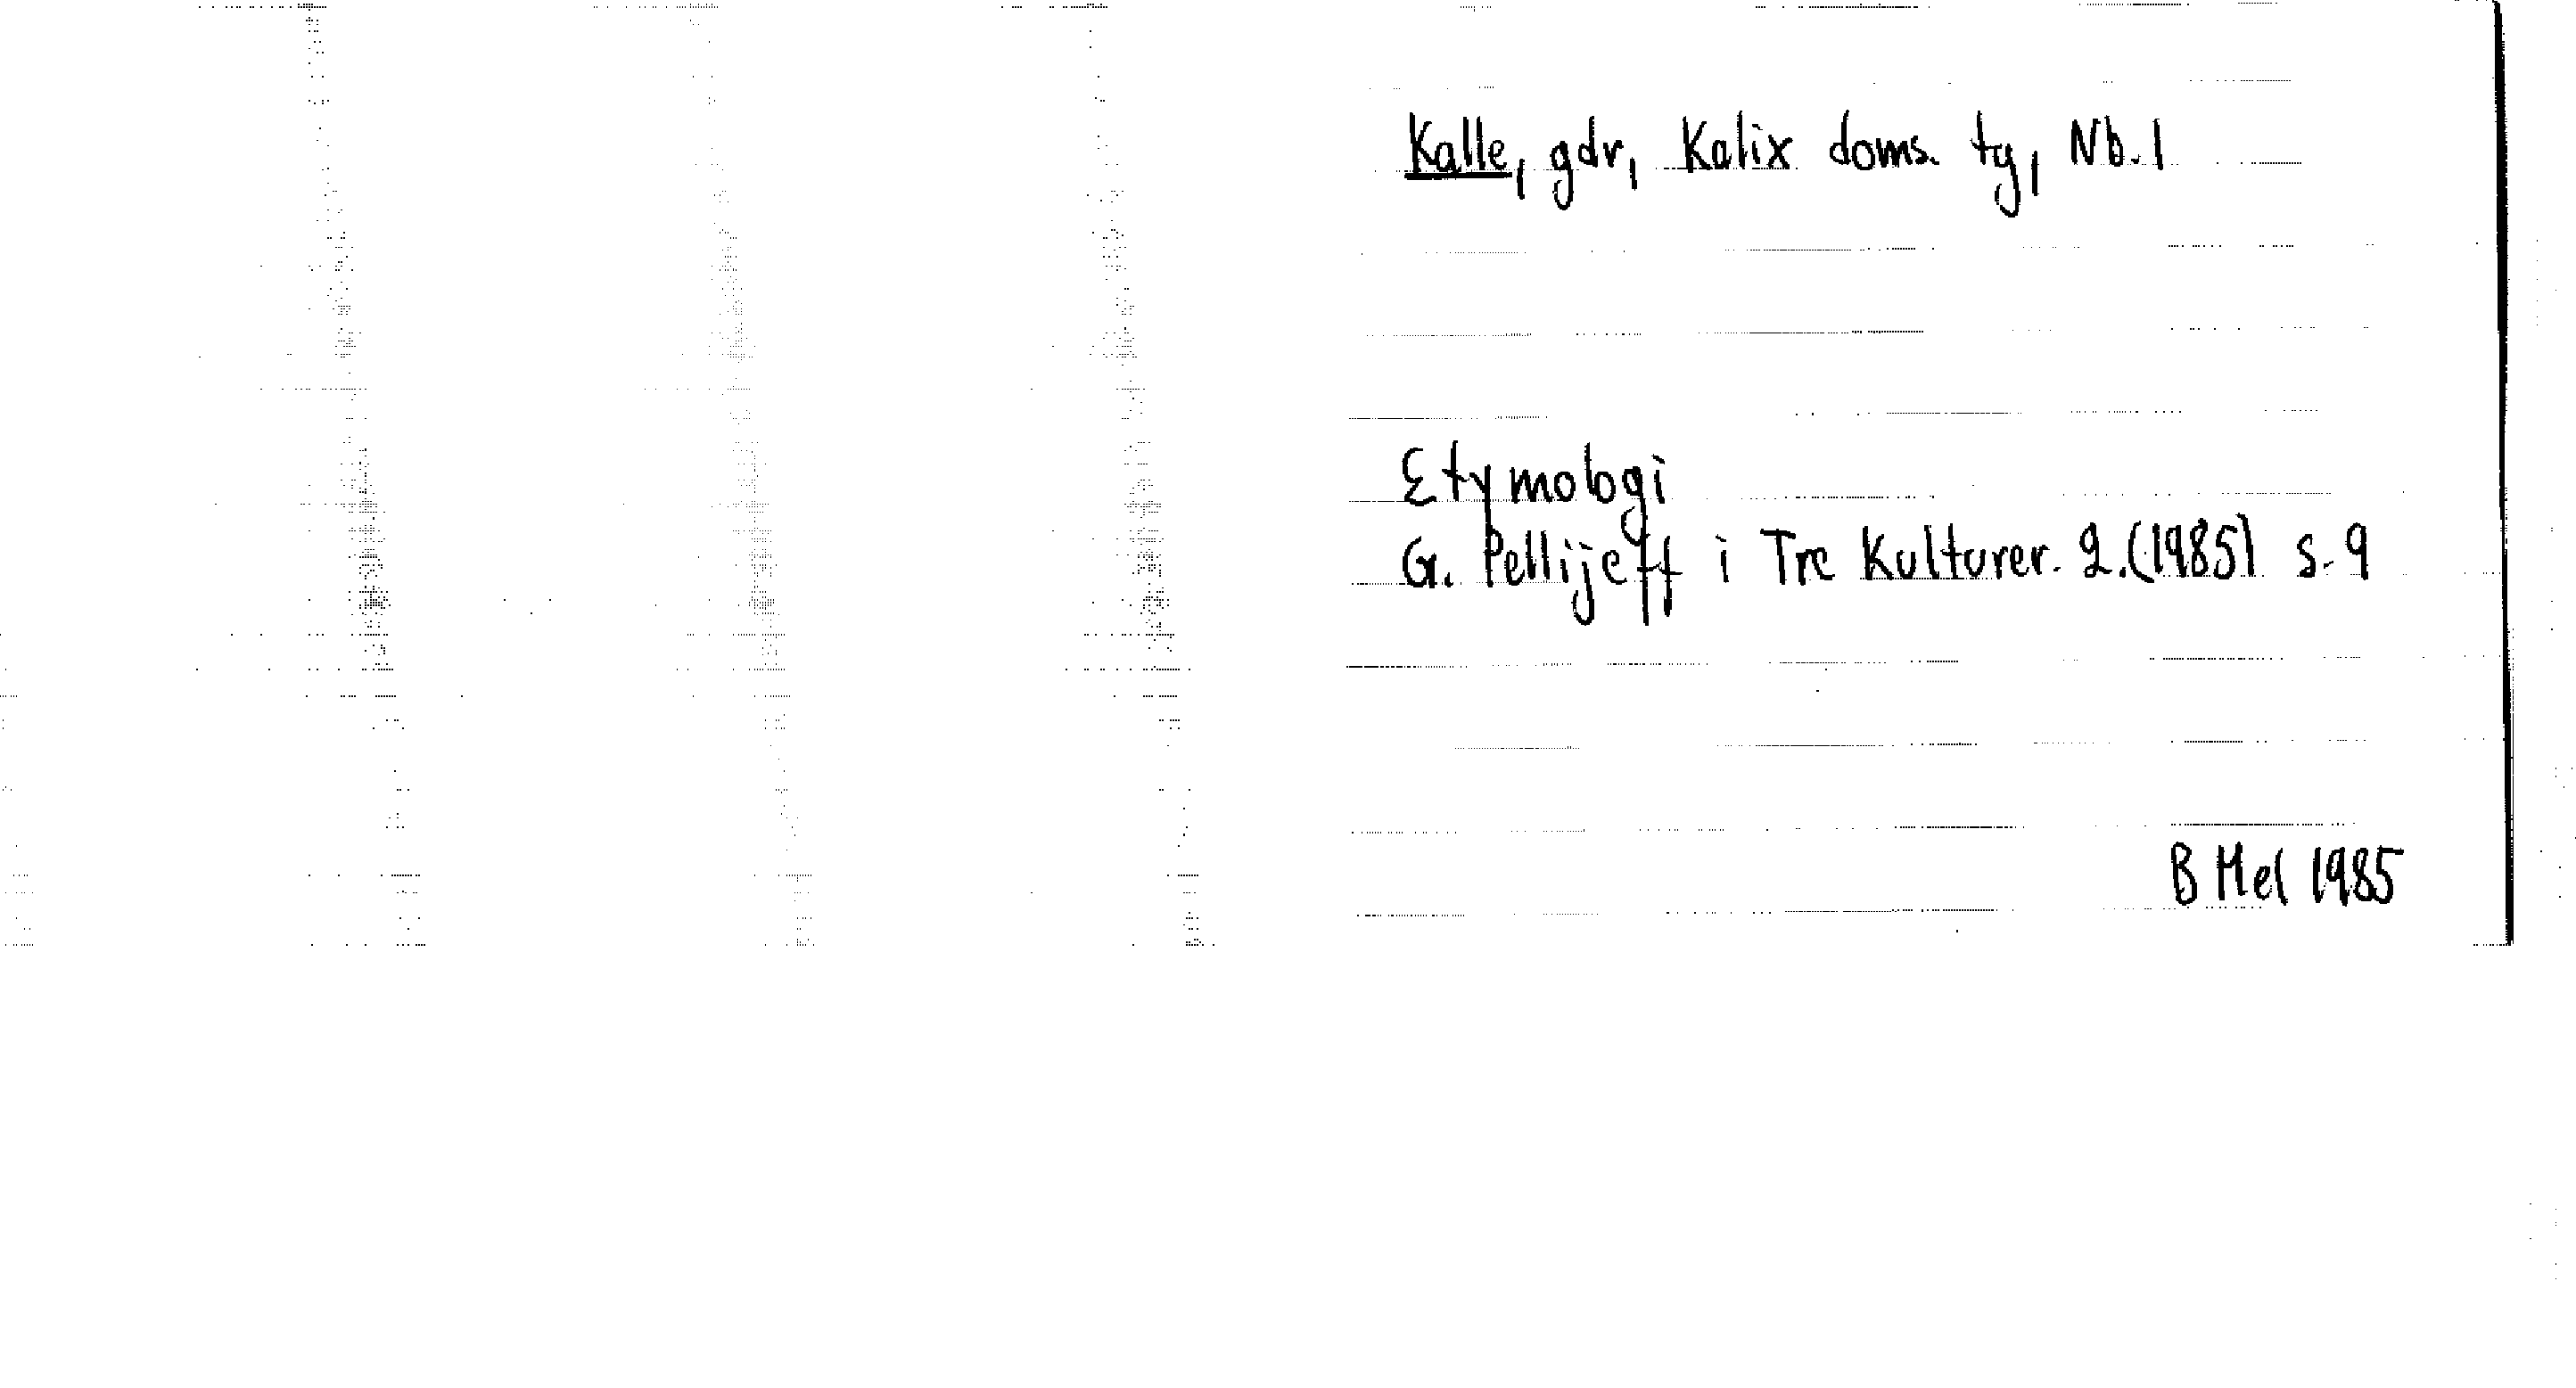 Kalle, gdr, Kalix doms. ty, Nb. l
Etymologi
G. Pellijeff i Tre Kulturer. 2.(1985) s. 9
B Mel 1985